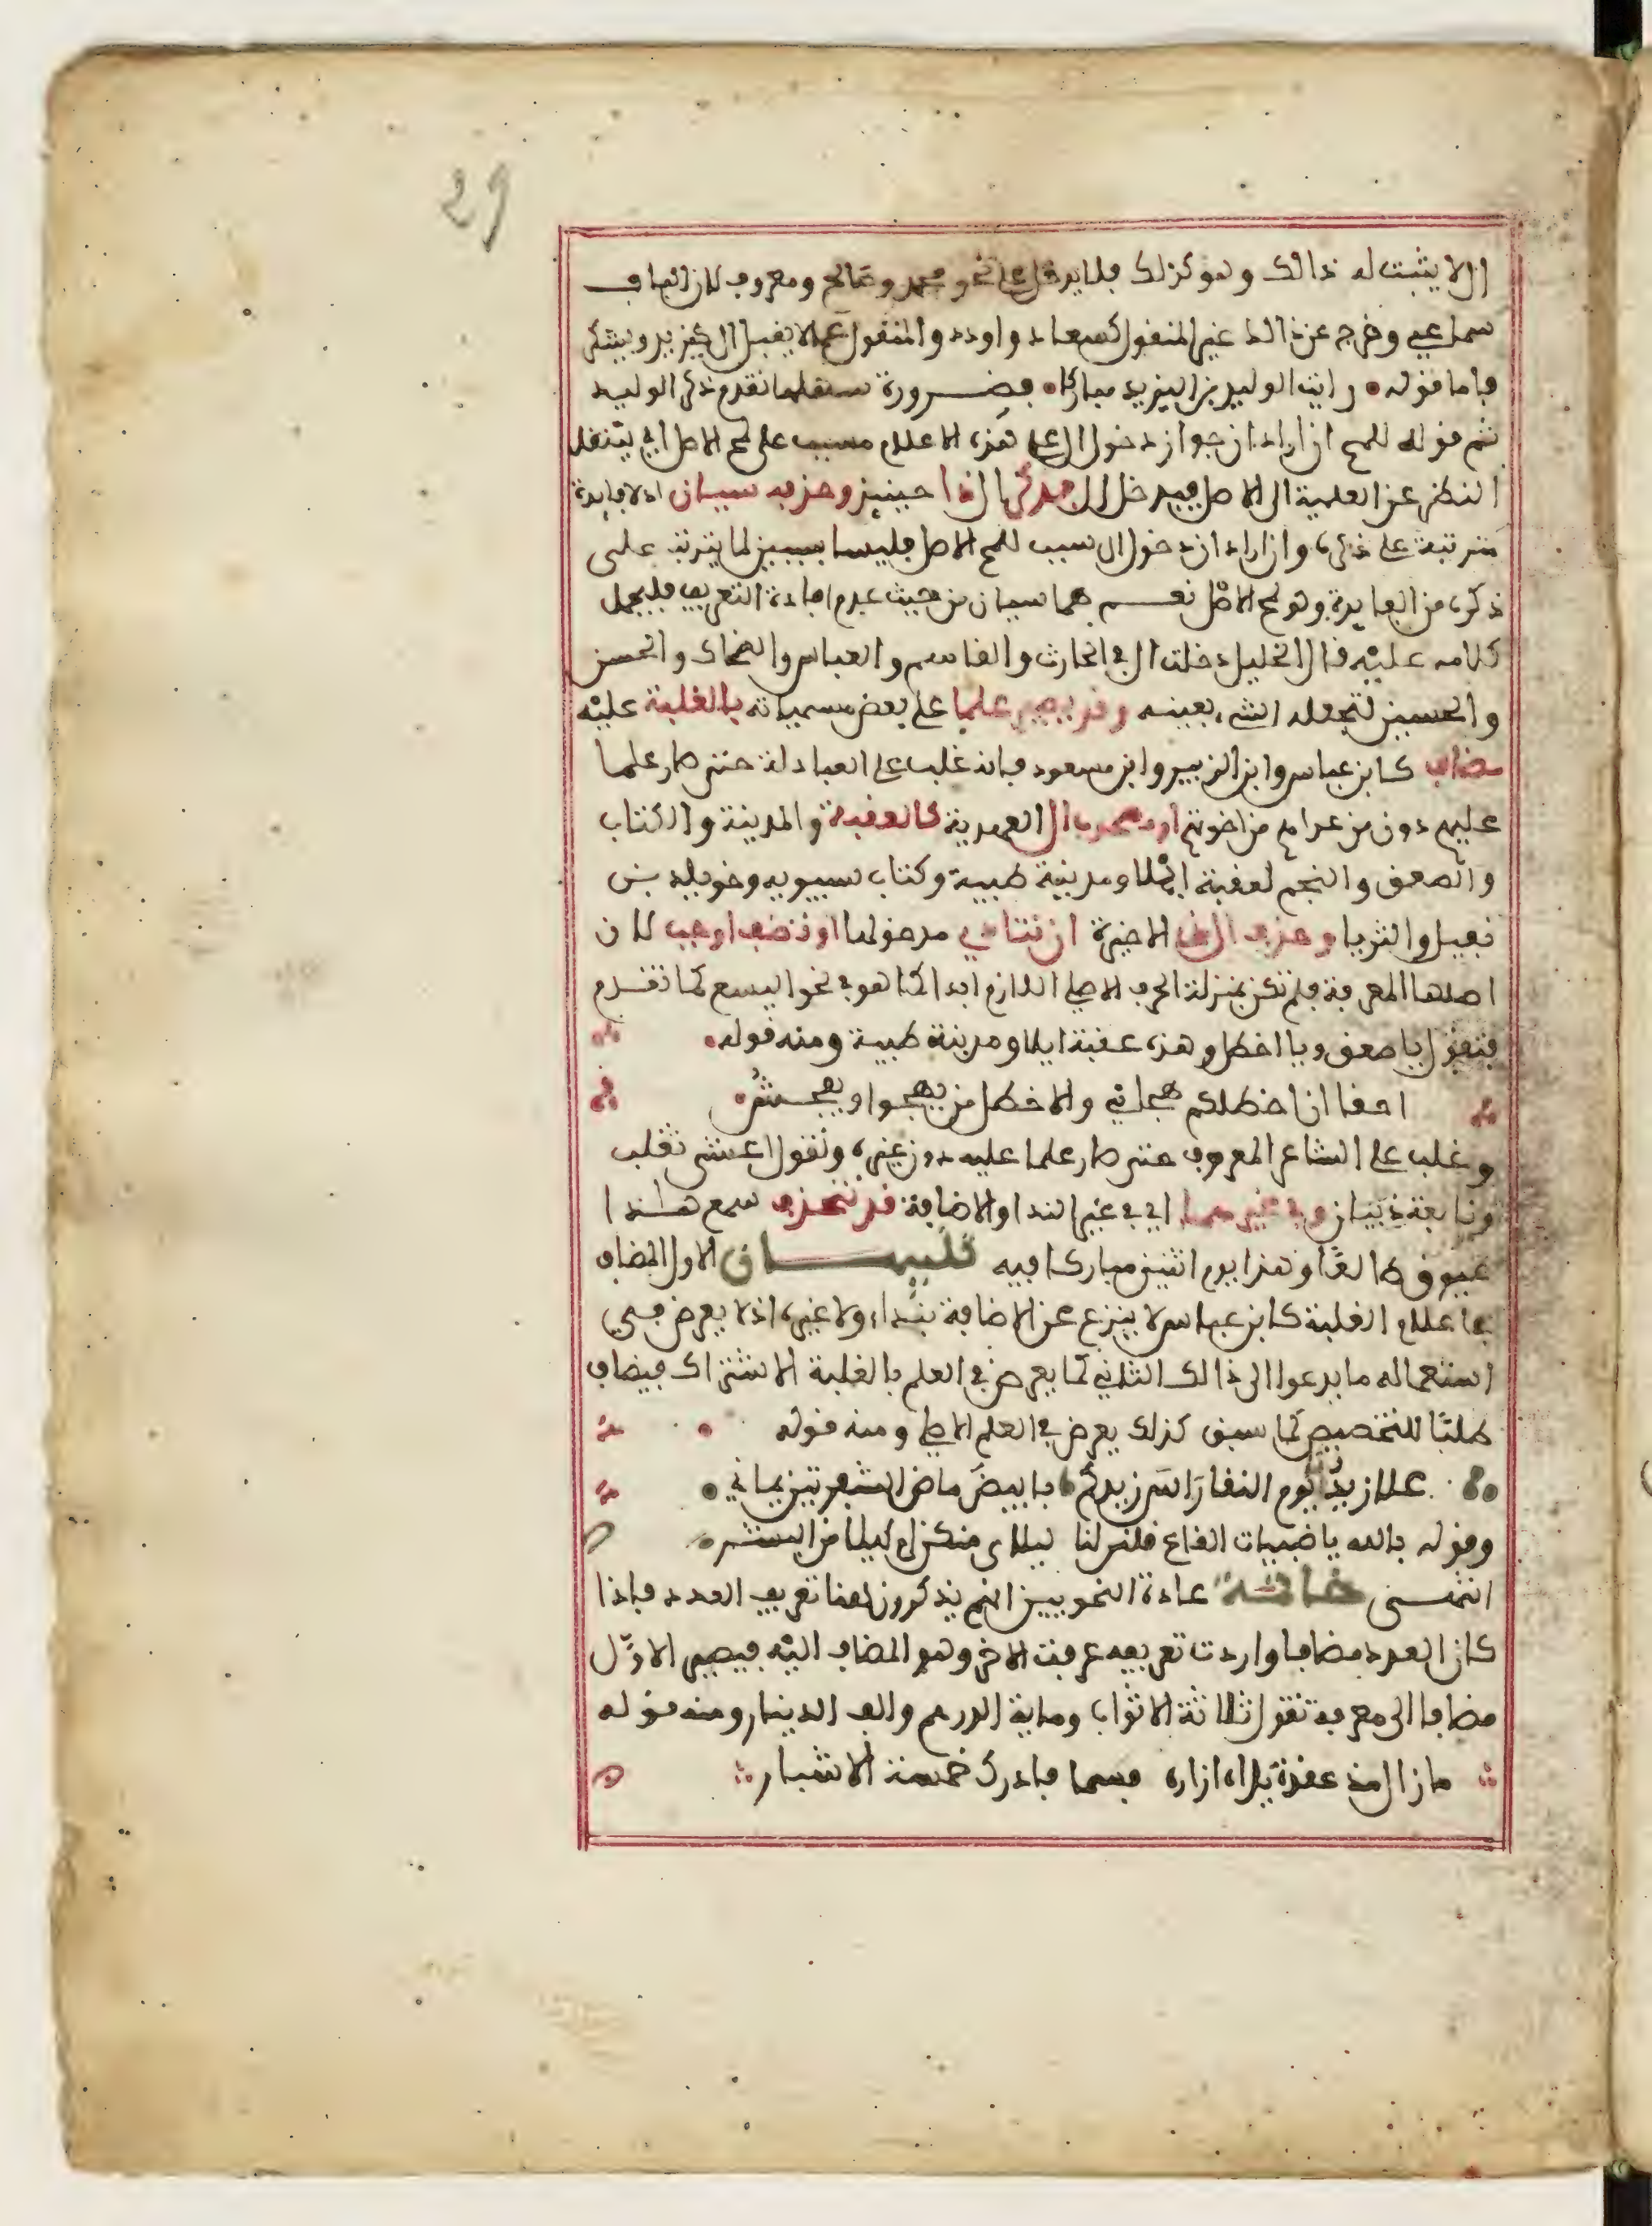 29
ال لا يثبت له ذالك وهو كذلك فلا يدخل على نحو محمد وصالح ومعروف لان الباب
سماعي وخرج عن ذالك غير المنقول كسعاد واودد والمنقول عما لا يقبل ال كيزيد ويشكر
فاما قوله رايت الوليد بن اليزيد مباركا فضرورة سهلها تقدم ذكر الوليد
ثم قوله للمح ان اراد ان جواز دخول ال على هذه الاعلام مسبب على لمح الاصل اي ينتقل
النظر عن العلمية الى الاصل فيدخل ال فذكر ذا حينئذ وحذفه سيان اذ لا فايدة
مترتبة على ذكره وان اراد ان دخول ال سبب للمح الاصل فليسا بسيين لما يترتب على
ذكره من الفايدة وهو لمح الاصل نعم هما سيان من حيث عدم افادة التعريف فليحمل
كلامه عليه قال الخليل دخلت ال في الحارث والقاسم والعباس والضحاك والحسن
والحسين لتجعله الشيء بعينه وقد يصير علما على بعض مسمياته بالغلبة عليه
مضاف كابن عباس وابن الزبير وابن مسعود فانه غلب على العبادلة حتى صار علما
عليهم دون من عداهم من اخوتهم او مصحوب ال العهدية كالعقبة والمدينة والكتاب
والصعق والنجم لعقبة ايلا ومدينة طيبة وكتاب سيبويه وخويلد بن
نفيل والثريا وحذف ال ذي الاخيرة ان تنادي مدخولها او تضف اوجب لان
اصلها المعرفة فلم تكن بمنزلة الحرف الاصلي اللازم ابدا كما هو في نحو اليسع كما تقدم
فتقول يا صعق ويا اخطل وهذه عقبة ايلا ومدينة طيبة ومنه قوله
احقا ان اخطلكم هجاني والاخطل من يهجوا ويفحش
وغلب على الشاعر المعروف حتى صار علما عليه دون غيره وتقول اعشى تغلب
ونابغة ذبيان وفي غيرهما اي في غير الندا والاضافة قد تنحذف سمع هاذا
عيوق طالعا وهذا يوم اثنين مباركا فيه تنبيهان الاول المضاف
في اعلام الغلبة كابن عباس لا ينزع عن الاضافة بنداء ولا غيره اذ لا يعرض في
استعماله ما يدعوا الى ذالك الثاني كما يعرض في العلم بالغلبة الاشتراك فيضاف
طلبا للتخصيص كما سبق كذلك يعرض في العلم الاصلي ومنه قوله
علا زيدنا يوم النقا راس زيدكم بابيض ماض الشفرتين يماني
وقوله بالله يا ضبيات القاع قلن لنا ليلاى منكن ام ليلا من البشر
انتهى خاتمة عادة النحويين انهم يذكرون هنا تعريف العدد فاذا
كان العدد مضافا واردت تعريفه عرفت الاخر وهو المضاف اليه فيصير الاول
مضافا الى معرفة تقول ثلاثة الاثواب وماية الدرهم والف الدينار ومنه قوله
ما زال مذ عقدة يداه ازاره فسما فادرك خمسة الاشبار